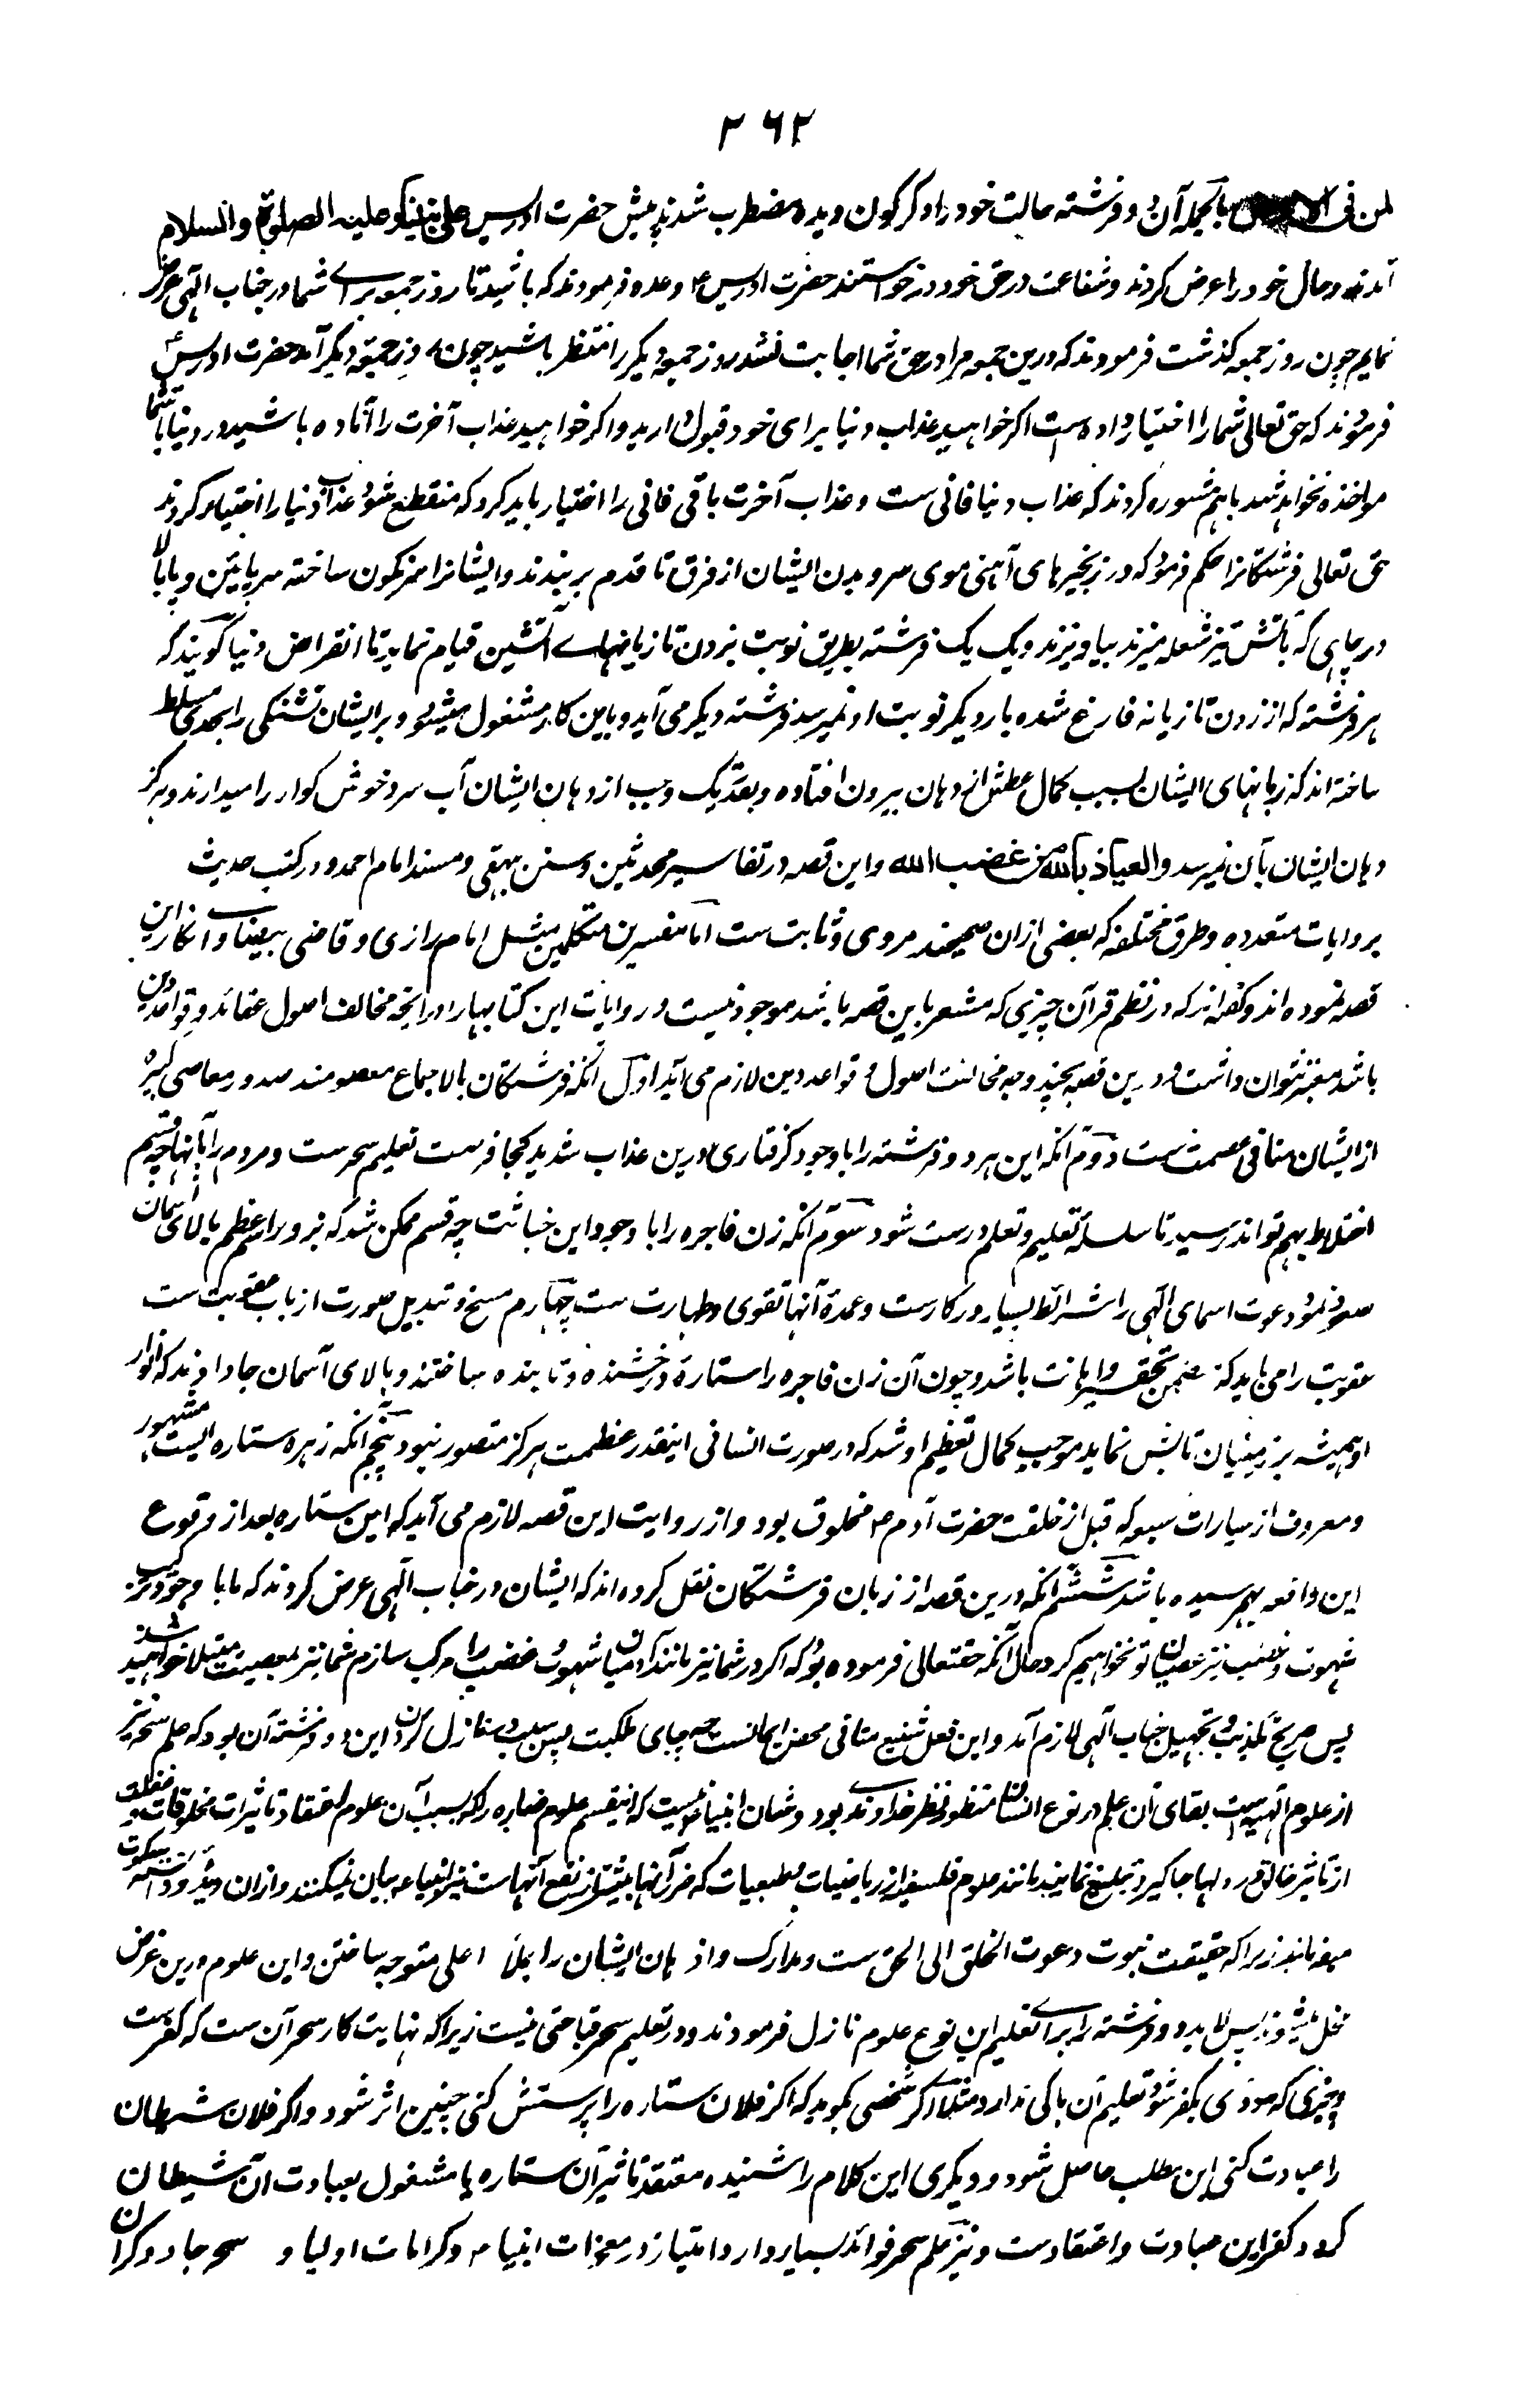 ۲۶۲
لمن فی الارض بالجمله آن دو فرشته حالت خود را دگرگون دیده مضطرب شدند پیش حضرت ادریس علی نبینا و علیه الصلوة والسلام
آمدند و حال خود را عرض کردند و شفاعت در حق خود درخواستند حضرت ادریس ع وعده فرمودند که باشید تا روز جمعه برای شما در جناب الهی عرض
نمایم چون روز جمعه گذشت فرمودند که درین جمعه مرا در حق شما اجابت نشد روز جمعه دیگر را منتظر باشید چون روز جمعه دیگر آمد حضرت ادریس ع
فرمودند که حق تعالی شما را اختیار داده است اگر خواهید عذاب دنیا برای خود قبول دارید و اگر خواهید عذاب آخرت را آماده باشید و در دنیا با شما
مواخذه نخواهد شد باهم مشوره کردند که عذاب دنیا فانی ست و عذاب آخرت باقی فانی را اختیار باید کرد که منقطع شود عذاب دنیا را اختیار کردند
حق تعالی فرشتگانرا حکم فرمود که در زنجیرهای آهنی موی سر و بدن ایشان از فرق تا قدم بربندند و ایشانرا سرنگون ساخته سر پائین و پا بالا
در چاهی که بآتش تیز شعله میزند بیاویزند و یک یک فرشته بطریق نوبت بزدن تازیانهای آتشین قیام نماید تا انقراض دنیا گویند که
هر فرشته که از زدن تازیانه فارغ شده بار دیگر نوبت او نمیرسد فرشته دیگر می آید و باین کار مشغول میشود و بر ایشان تشنگی را بحدی مسلط
ساخته اند که زبانهای ایشان بسبب کمال عطش از دهان بیرون افتاده و بقدر یک وجب از دهان ایشان آب سرد خوش گوار را میدارند و هرگز
دهان ایشان بآن نمیرسد والعیاذ بالله من غضب الله و این قصه در تفاسیر محدثین و سنن بیهقی و مسند امام احمد و در کتب حدیث
بروایات متعدده و طرق مختلفه که بعضی ازان صحیحند مروی و ثابت ست اما مفسرین متکلمین مثل امام رازی و قاضی بیضاوی انکار این
قصه نموده اند و گفته اند که در نظم قرآن چیزی که مشعر باین قصه باشد موجود نیست و روایات این کتابها را در آنچه مخالف اصول عقائد و قواعد دین
باشد معتبر نتوان داشت و درین قصه بچند وجه مخالفت اصول و قواعد دین لازم می آید اول آنکه فرشتگان بالاجماع معصومند صدور معاصی کبیره
از ایشان منافی عصمت ست دوم آنکه این هر دو فرشته را باوجود گرفتاری درین عذاب شدید کجا فرصت تعلیم سحر ست و مردم را بآنها چه قسم
اختلاط بهم تواند رسید تا سلسله تعلیم و تعلم درست شود سوم آنکه زن فاجره را باوجود این خباثت چه قسم ممکن شد که بزور اسم اعظم بالای آسمان
صعود نمود دعوت اسمای الهی را شرائط بسیار در کارست و عمده آنها تقوی و طهارت ست چهارم مسخ و تبدیل صورت از باب عقوبت ست
عقوبت را می باید که متضمن تحقیر و اهانت باشد و چون آن زن فاجره را ستاره درخشنده و تابنده ساختند و بالای آسمان جا دادند که انوار
او همیشه بر زمینیان تابش نماید موجب کمال تعظیم او شد که در صورت انسانی اینقدر عظمت هرگز متصور نبود پنجم آنکه زهره ستاره ایست مشهور
و معروف از سیارات سبعه که قبل از خلقت حضرت آدم ع مخلوق بود و از روایت این قصه لازم می آید که این ستاره بعد از وقوع
این واقعه بهم رسیده باشد ششم آنکه درین قصه از زبان فرشتگان نقل کرده اند که ایشان در جناب الهی عرض کردند که ما باوجود ترکیب
شهوت و غضب نیز عصیان تو نخواهیم کرد حال آنکه حقتعالی فرموده بود که اگر در شما نیز مانند آدمیان شهوت و غضب را مرکب سازم شما نیز بمعصیت مبتلا خواهید شد
پس صریح تکذیب و تجهیل جناب الهی لازم آمد و این فعل شنیع منافی محض ایمانست چه جای ملکیت پس سبب نازل کردن این دو فرشته آن بود که علم سحر نیز
از علوم الهیه است بقای آن علم در نوع انسان منظور نظر خداوندی بود و شان انبیا ع نیست که اینقسم علوم ضاره را که بسبب آن علوم اعتقاد تاثیرات مخلوقات و غفلت
از تاثیر خالق در دلها جا گیرد تبلیغ نمایند مانند علوم فلسفه از ریاضیات و طبعیات که ضرر آنها بیشتر از نفع آنهاست نیز انبیا ع بیان نمیکنند و ازان دیده و دانسته سکوت
میفرمایند زیرا که حقیقت نبوت دعوت الخلق الی الحق ست و مدارک و اذهان ایشان را بملأ اعلی متوجه ساختن و این علوم درین غرض
مخل میشوند پس لابد دو فرشته را برای تعلیم این نوع علوم نازل فرمودند و در تعلیم سحر قباحتی نیست زیرا که نهایت کار سحر آن ست که کفرست
و چیزی که مودی بکفر شود تعلیم آن باکی ندارد مثلا اگر شخصی بگوید که اگر فلان ستاره را پرستش کنی چنین اثر شود و اگر فلان شیطان
را عبادت کنی این مطلب حاصل شود و دیگری این کلام را شنیده معتقد تاثیر آن ستاره یا مشغول بعبادت آن شیطان
گردد کفر این عبادت و اعتقادست و نیز علم سحر فوائد بسیار دارد امتیاز در معجزات انبیا ع و کرامات اولیا و سحر جادوگران